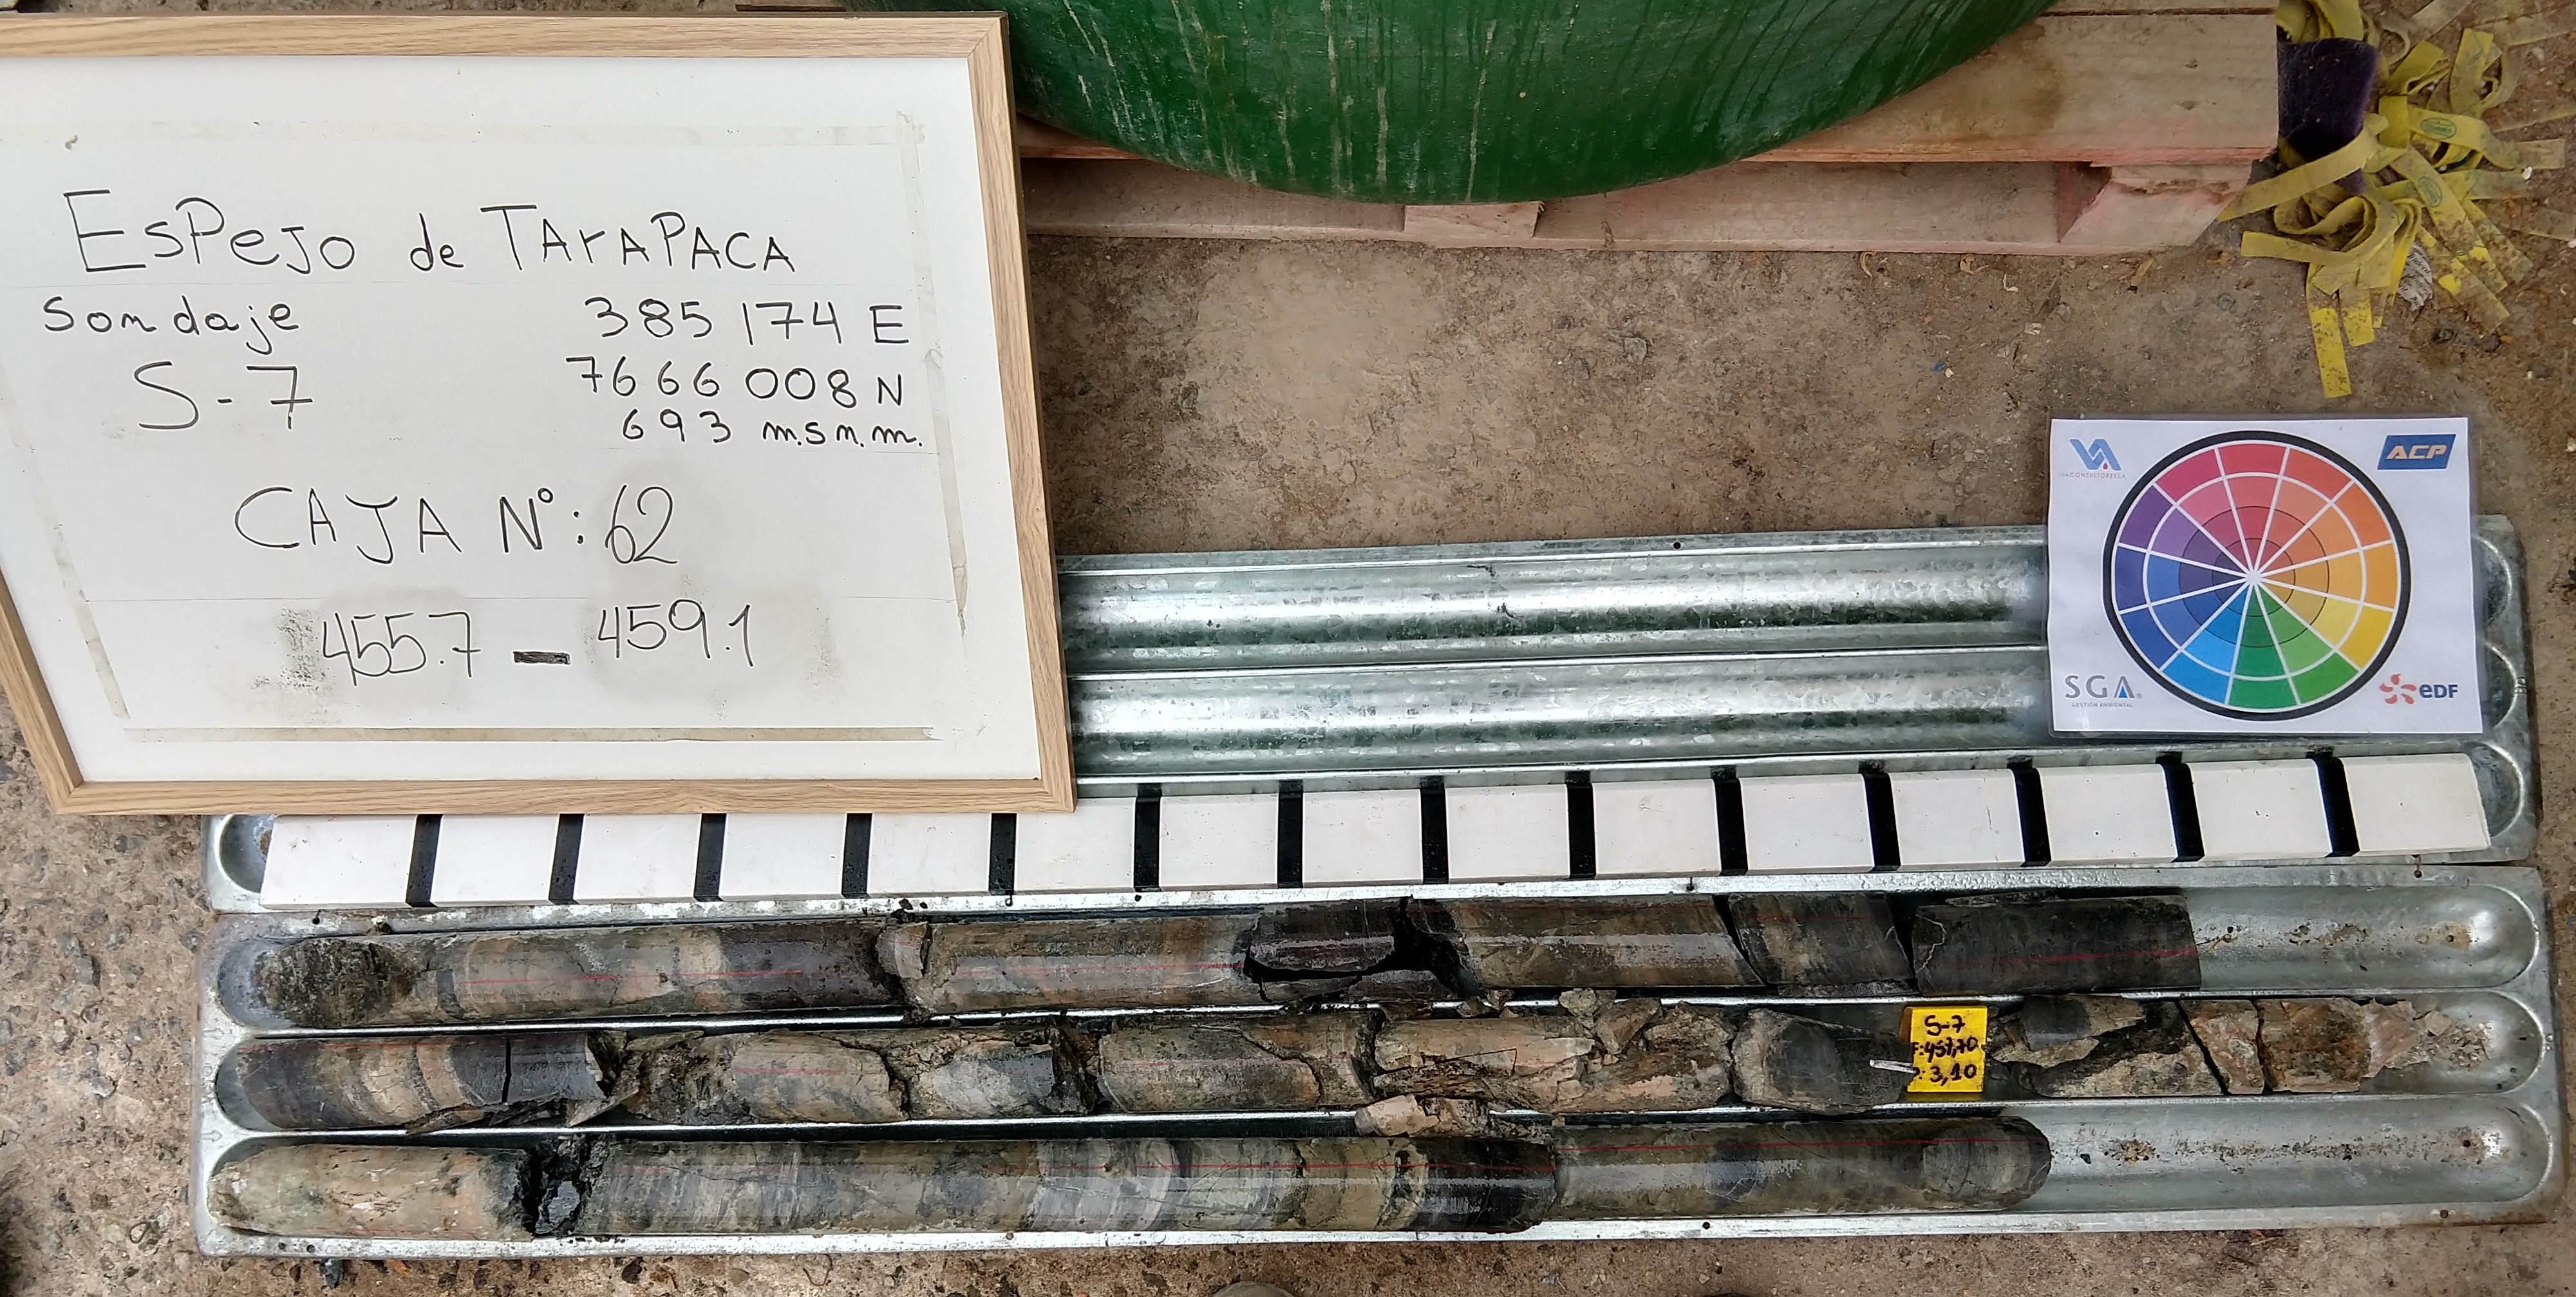 EsPeJo de TArAPACA
Sondaje
385 174 E
S-7
7666 008 N
693 m.s.n.m.
CAJA N°: 62
455.7 - 459.1
VA
ACP
SGA
GESTIÓN AMBIENTAL
eDF
S-7
3,10